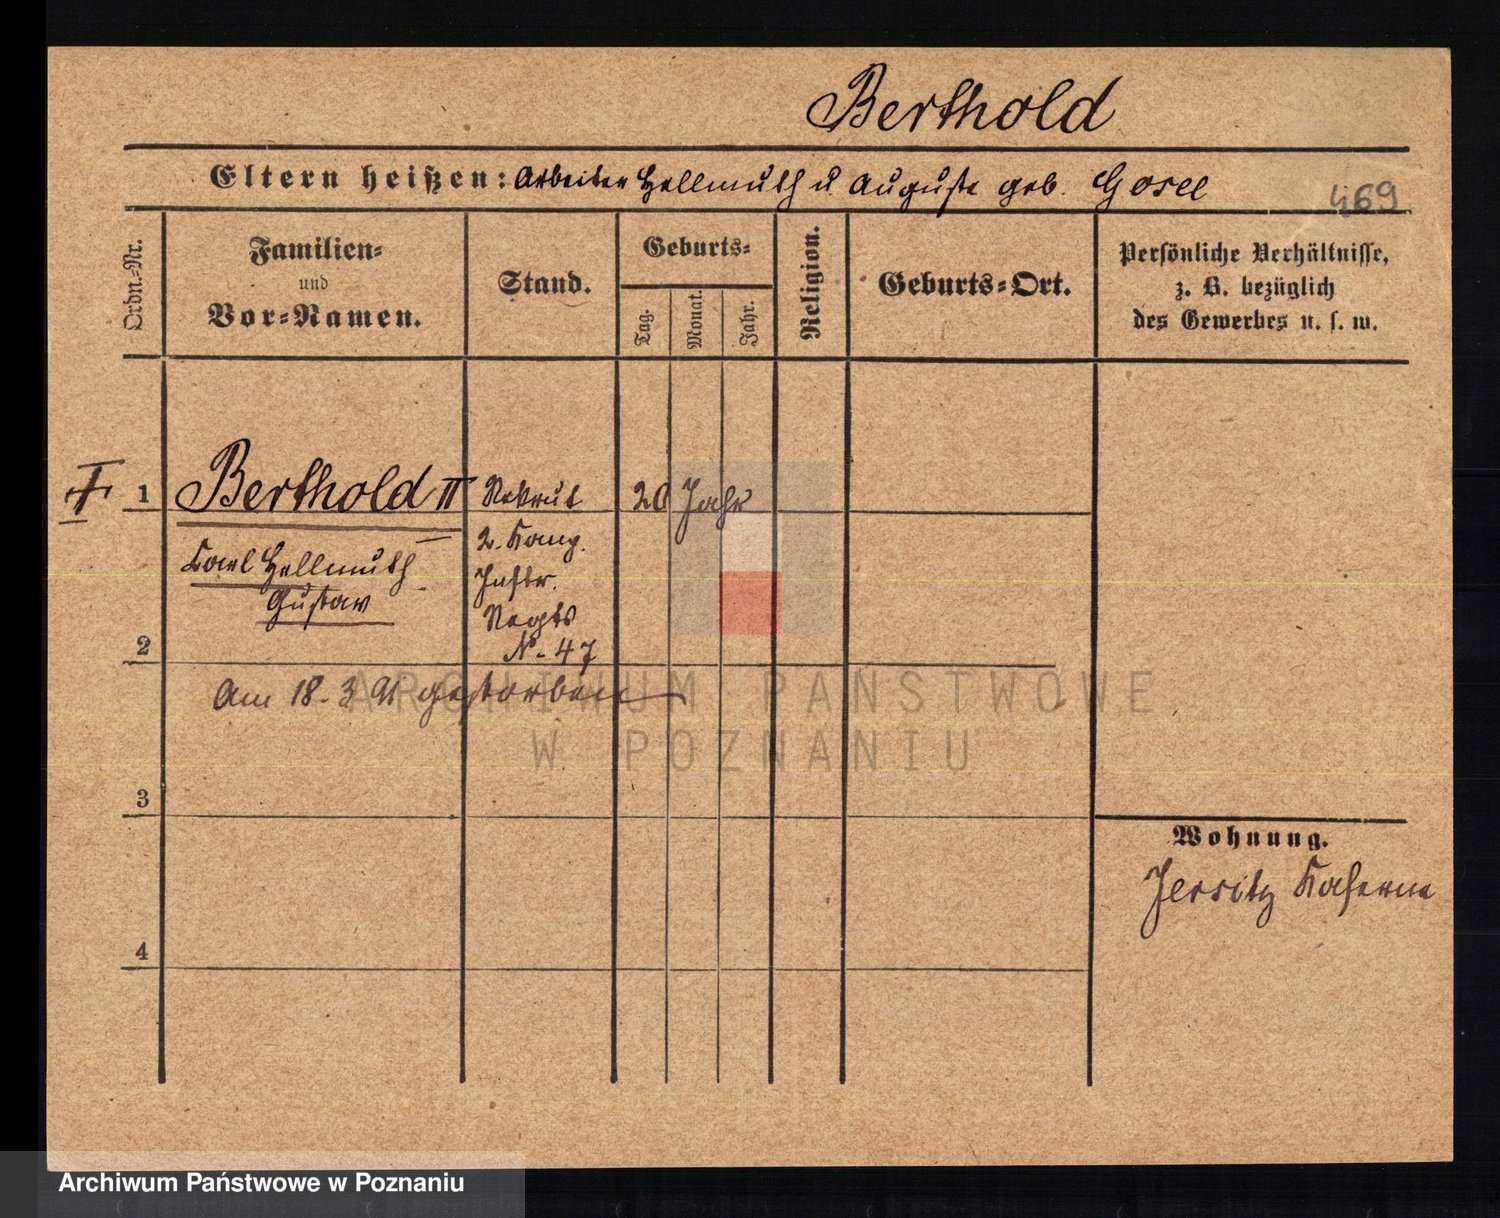 Berthold
Eltern heißen: Arbeiter Hellmuth u. Auguste geb. Gosee
469
Ordn.-Nr.
Familien-
und
Vor-Namen.
Stand.
Geburts-
Tag.
Monat.
Jahr.
Religion.
Geburts-Ort.
Persönliche Verhältnisse,
z. B. bezüglich
des Gewerbes u. s. w.
1 Berthold II Rekrut 20 Jahr
2. Komp.
Carl Hellmuth
Inftr.
Gustav
Regts
2
No. 47
Am 18-3 91 gestorben
ARCHIWUM PAŃSTWOWE
W POZNANIU
3
Wohnung.
Jersitz Kaserne
4
Archiwum Państwowe w Poznaniu